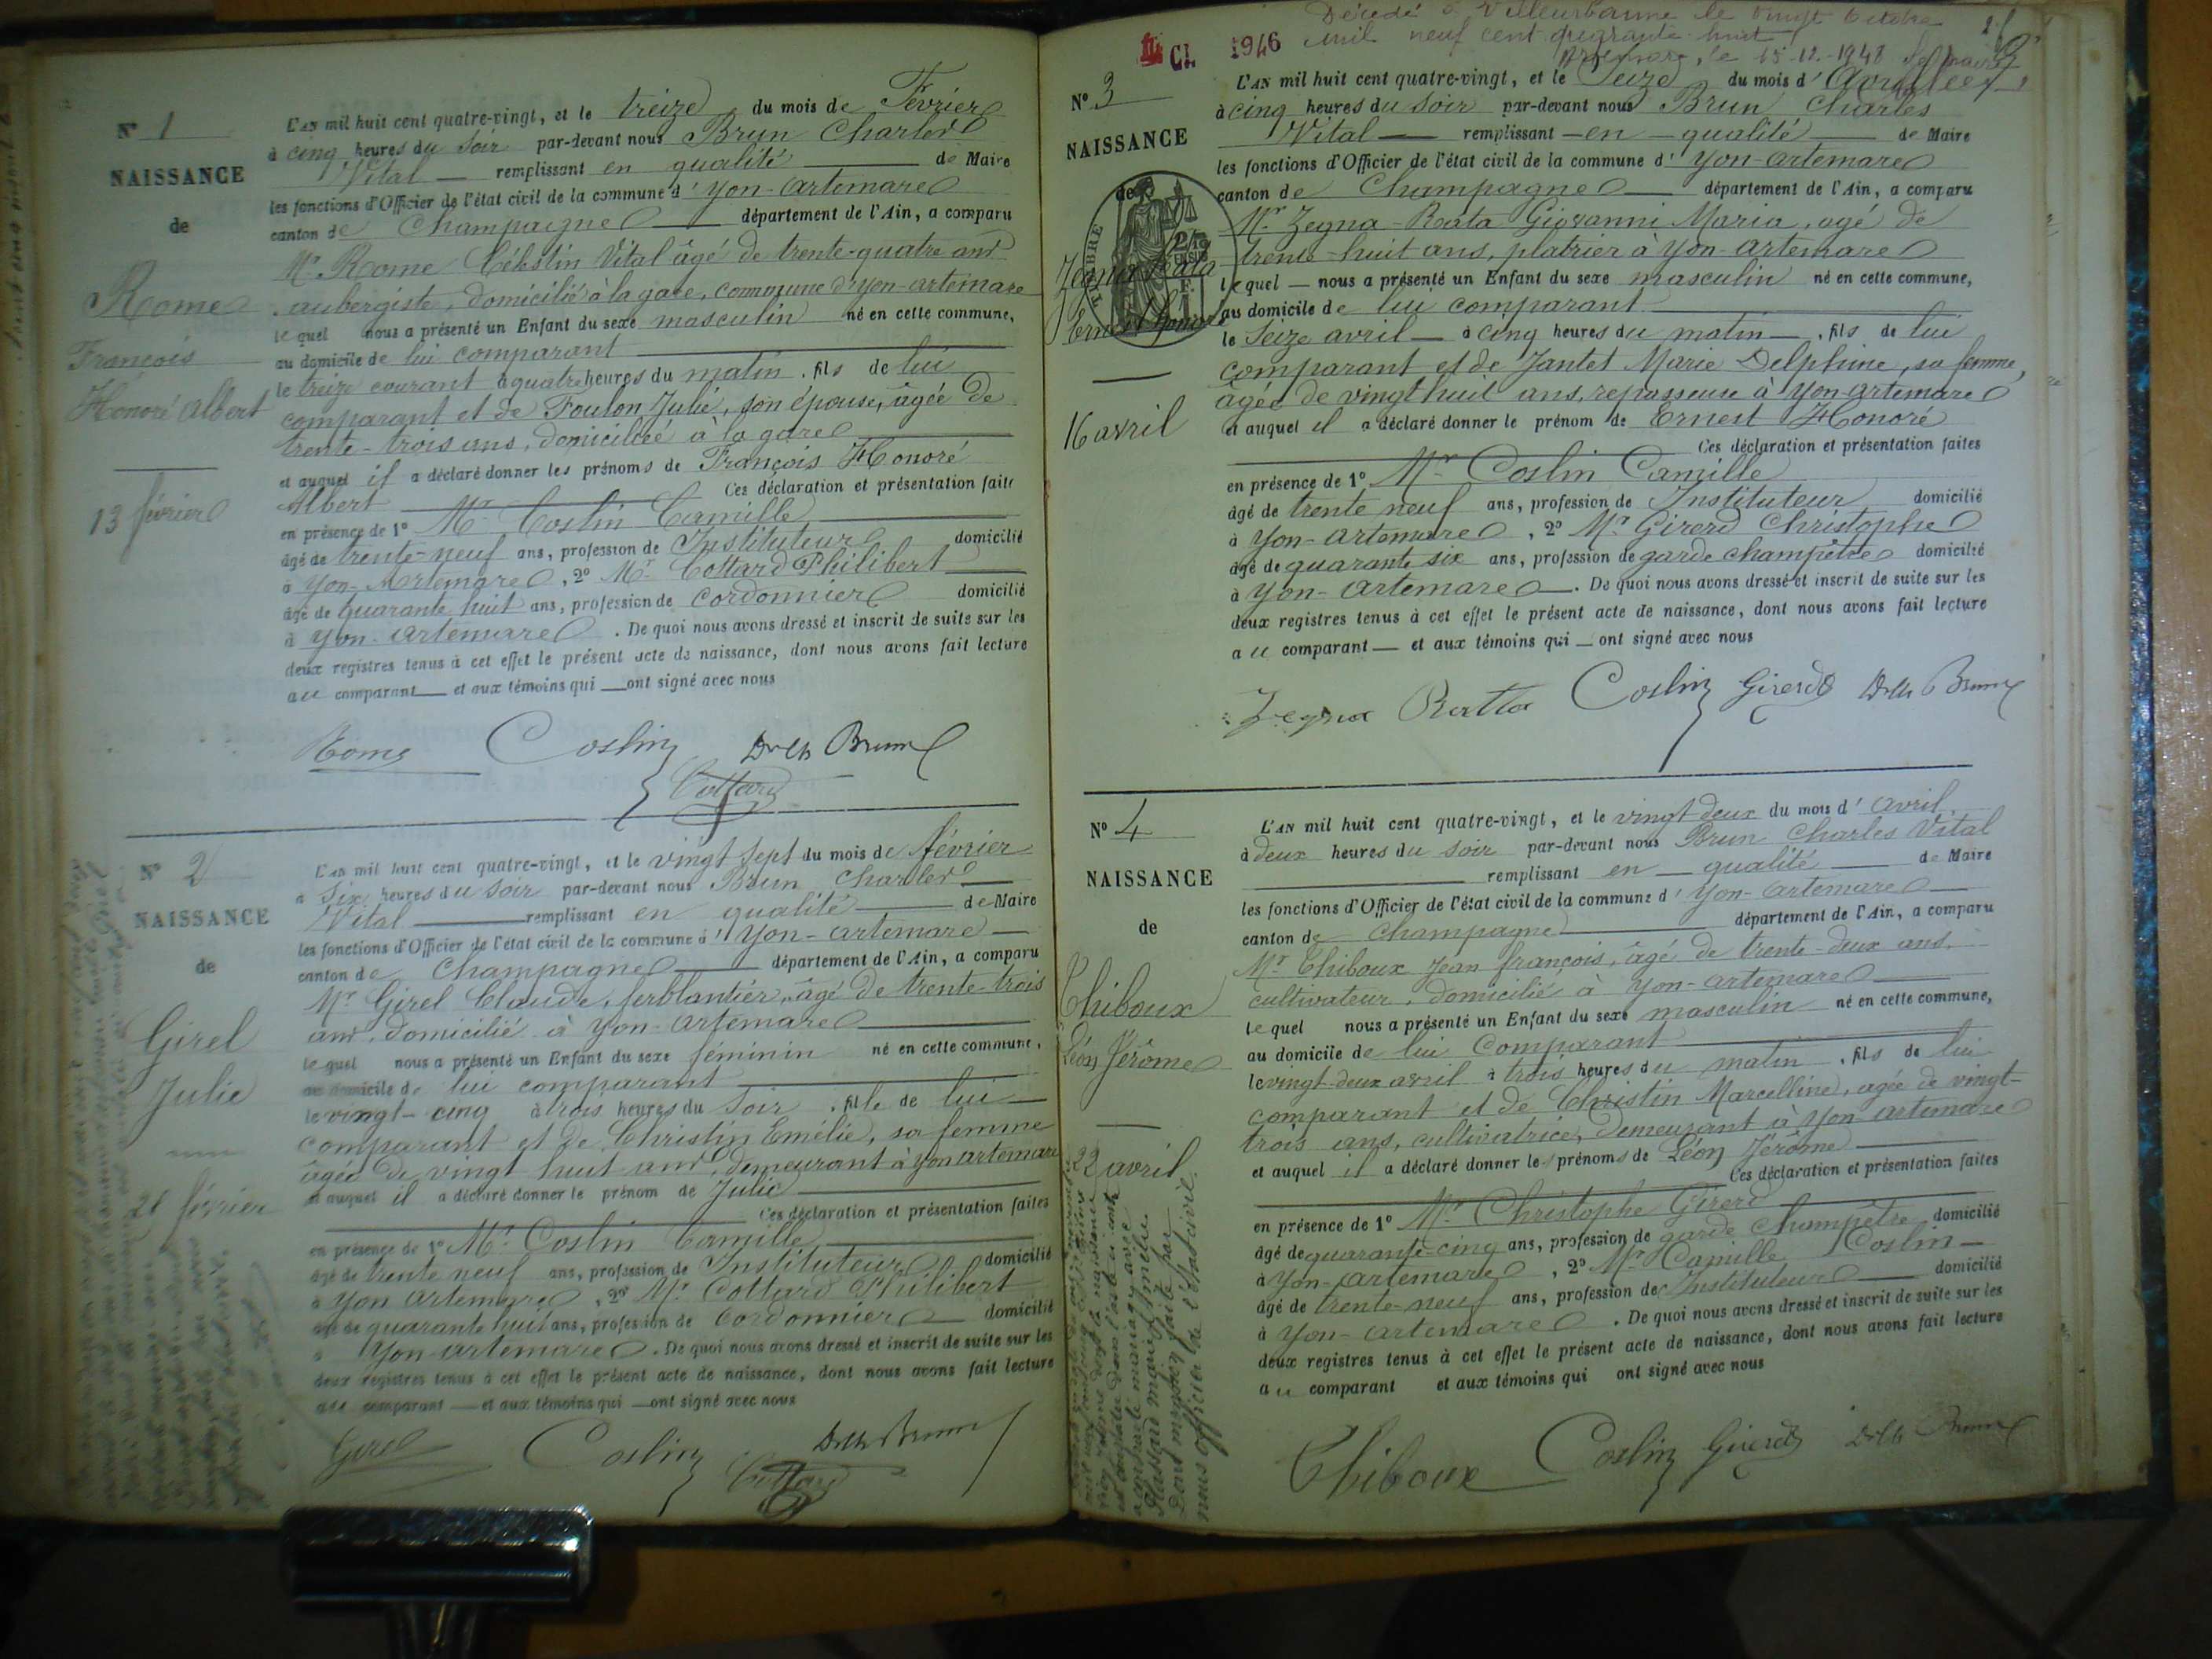 N° 1
NAISSANCE
de
Rome
François
Honoré Albert
13 février
L'AN mil huit cent quatre-vingt, et le treize du mois de Février
à cinq heures du soir par-devant nous Brun Charles
Vital remplissant en qualité de Maire
les fonctions d'Officier de l'état civil de la commune d'Yon-Artemare
canton de Champagne département de l'Ain, a comparu
Mr Rome Célestin Vital âgé de trente-quatre ans
aubergiste, domicilié à la gare, commune d'yon-artemare
lequel nous a présenté un Enfant du sexe masculin né en cette commune,
au domicile de lui comparant
le treize courant à quatre heures du matin, fils de lui
comparant et de Foulon Julie, son épouse, âgée de
trente-trois ans, domiciliée à la gare
et auquel il a déclaré donner les prénoms de François Honoré
Albert Ces déclaration et présentation faites
en présence de 1° Mr Coslin Camille
âgé de trente-neuf ans, profession de Instituteur domicilié
à Yon-Artemare, 2° Mr Cottard Philibert
âgé de quarante huit ans, profession de cordonnier domicilié
à Yon-Artemare. De quoi nous avons dressé et inscrit de suite sur les
deux registres tenus à cet effet le présent acte de naissance, dont nous avons fait lecture
au comparant et aux témoins qui ont signé avec nous
Rome Coslin Brun
Cottard
N° 2
NAISSANCE
de
Girel
Julie
février
L'AN mil huit cent quatre-vingt, et le vingt sept du mois de février
à six heures du soir par-devant nous Brun Charles
Vital remplissant en qualité de Maire
les fonctions d'Officier de l'état civil de la commune d'Yon-Artemare
canton de Champagne département de l'Ain, a comparu
Mr Girel Claude, ferblantier, âgé de trente-trois
ans, domicilié à Yon-Artemare
lequel nous a présenté un Enfant du sexe féminin né en cette commune,
au domicile de lui comparant
le vingt-cinq à trois heures du soir, fille de lui
comparant et de Christin Emélie, sa femme
âgée de vingt huit ans, demeurant à Yon artemare
et auquel il a déclaré donner le prénom de Julie
Ces déclaration et présentation faites
en présence de 1° Mr Coslin Camille
âgé de trente neuf ans, profession de Instituteur domicilié
à Yon Artemare, 2° Mr Cottard Philibert
âgé de quarante huit ans, profession de Cordonnier domicilié
à Yon-artemare. De quoi nous avons dressé et inscrit de suite sur les
deux registres tenus à cet effet le présent acte de naissance, dont nous avons fait lecture
au comparant et aux témoins qui ont signé avec nous
Girel Coslin Brun
Cottard
Décédé à Villeurbanne le vingt Octobre
mil neuf cent quarante huit
Artemare, le 15-12-1948 Le maire
CL 1946
N° 3
NAISSANCE
de
TIMBRE
Zegna Rata
Ernest Honoré
16 avril
L'AN mil huit cent quatre-vingt, et le Seize du mois d'Avril
à cinq heures du soir par-devant nous Brun Charles
Vital remplissant en qualité de Maire
les fonctions d'Officier de l'état civil de la commune d'Yon-Artemare
canton de Champagne département de l'Ain, a comparu
Mr Zegna-Rata Giovanni Maria, agé de
trente-huit ans, platrier à Yon-artemare
lequel nous a présenté un Enfant du sexe masculin né en cette commune,
au domicile de lui comparant
le Seize avril à cinq heures du matin, fils de lui
comparant et de Jantet Marie Delphine, sa femme,
âgée de vingt huit ans, repasseuse à Yon-artemare
et auquel il a déclaré donner le prénom de Ernest Honoré
Ces déclaration et présentation faites
en présence de 1° Mr Coslin Camille
âgé de trente neuf ans, profession de Instituteur domicilié
à Yon-Artemare, 2° Mr Girerd Christophe
âgé de quarante six ans, profession de garde champêtre domicilié
à Yon-Artemare. De quoi nous avons dressé et inscrit de suite sur les
deux registres tenus à cet effet le présent acte de naissance, dont nous avons fait lecture
au comparant et aux témoins qui ont signé avec nous
Zegna Ratta Coslin Girerd Brun
N° 4
NAISSANCE
de
Thiboux
Léon Jérôme
22 avril
Dont mention faite par
nous officier de l'état civil.
L'AN mil huit cent quatre-vingt, et le vingt-deux du mois d'avril
à deux heures du soir par-devant nous Brun Charles Vital
remplissant en qualité de Maire
les fonctions d'Officier de l'état civil de la commune d'Yon-Artemare
canton de Champagne département de l'Ain, a comparu
Mr Thiboux Jean françois, âgé de trente-deux ans,
cultivateur, domicilié à Yon-artemare
lequel nous a présenté un Enfant du sexe masculin né en cette commune,
au domicile de lui Comparant
le vingt-deux avril à trois heures du matin, fils de lui
comparant et de Christin Marcelline, agée de vingt-
trois ans, cultivatrice, demeurant à Yon artemare
et auquel il a déclaré donner les prénoms de Léon Jérôme
Ces déclaration et présentation faites
en présence de 1° Mr Christophe Girerd
âgé de quarante-cinq ans, profession de garde champêtre domicilié
à Yon-Artemare, 2° Mr Camille Coslin
âgé de trente-neuf ans, profession de Instituteur domicilié
à Yon-artemare. De quoi nous avons dressé et inscrit de suite sur les
deux registres tenus à cet effet le présent acte de naissance, dont nous avons fait lecture
au comparant et aux témoins qui ont signé avec nous
Thiboux Coslin Girerd Brun